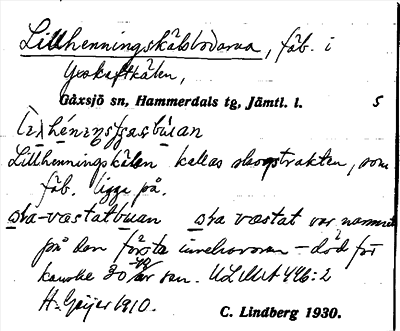 Lillhenningskälsbodarna, fäb. i
Gåxsjö sn, Hammerdals tg, Jämtl. l. 5
Lillhenningskälen kallas skogstrakten, som
fäb. ligga på.
stra-västatbuan stra västat var namnet
på den första innehavaren – död för
kanske 30 år sen. ULMA 446:2
H. Geijer 1910.
C. Lindberg 1930.